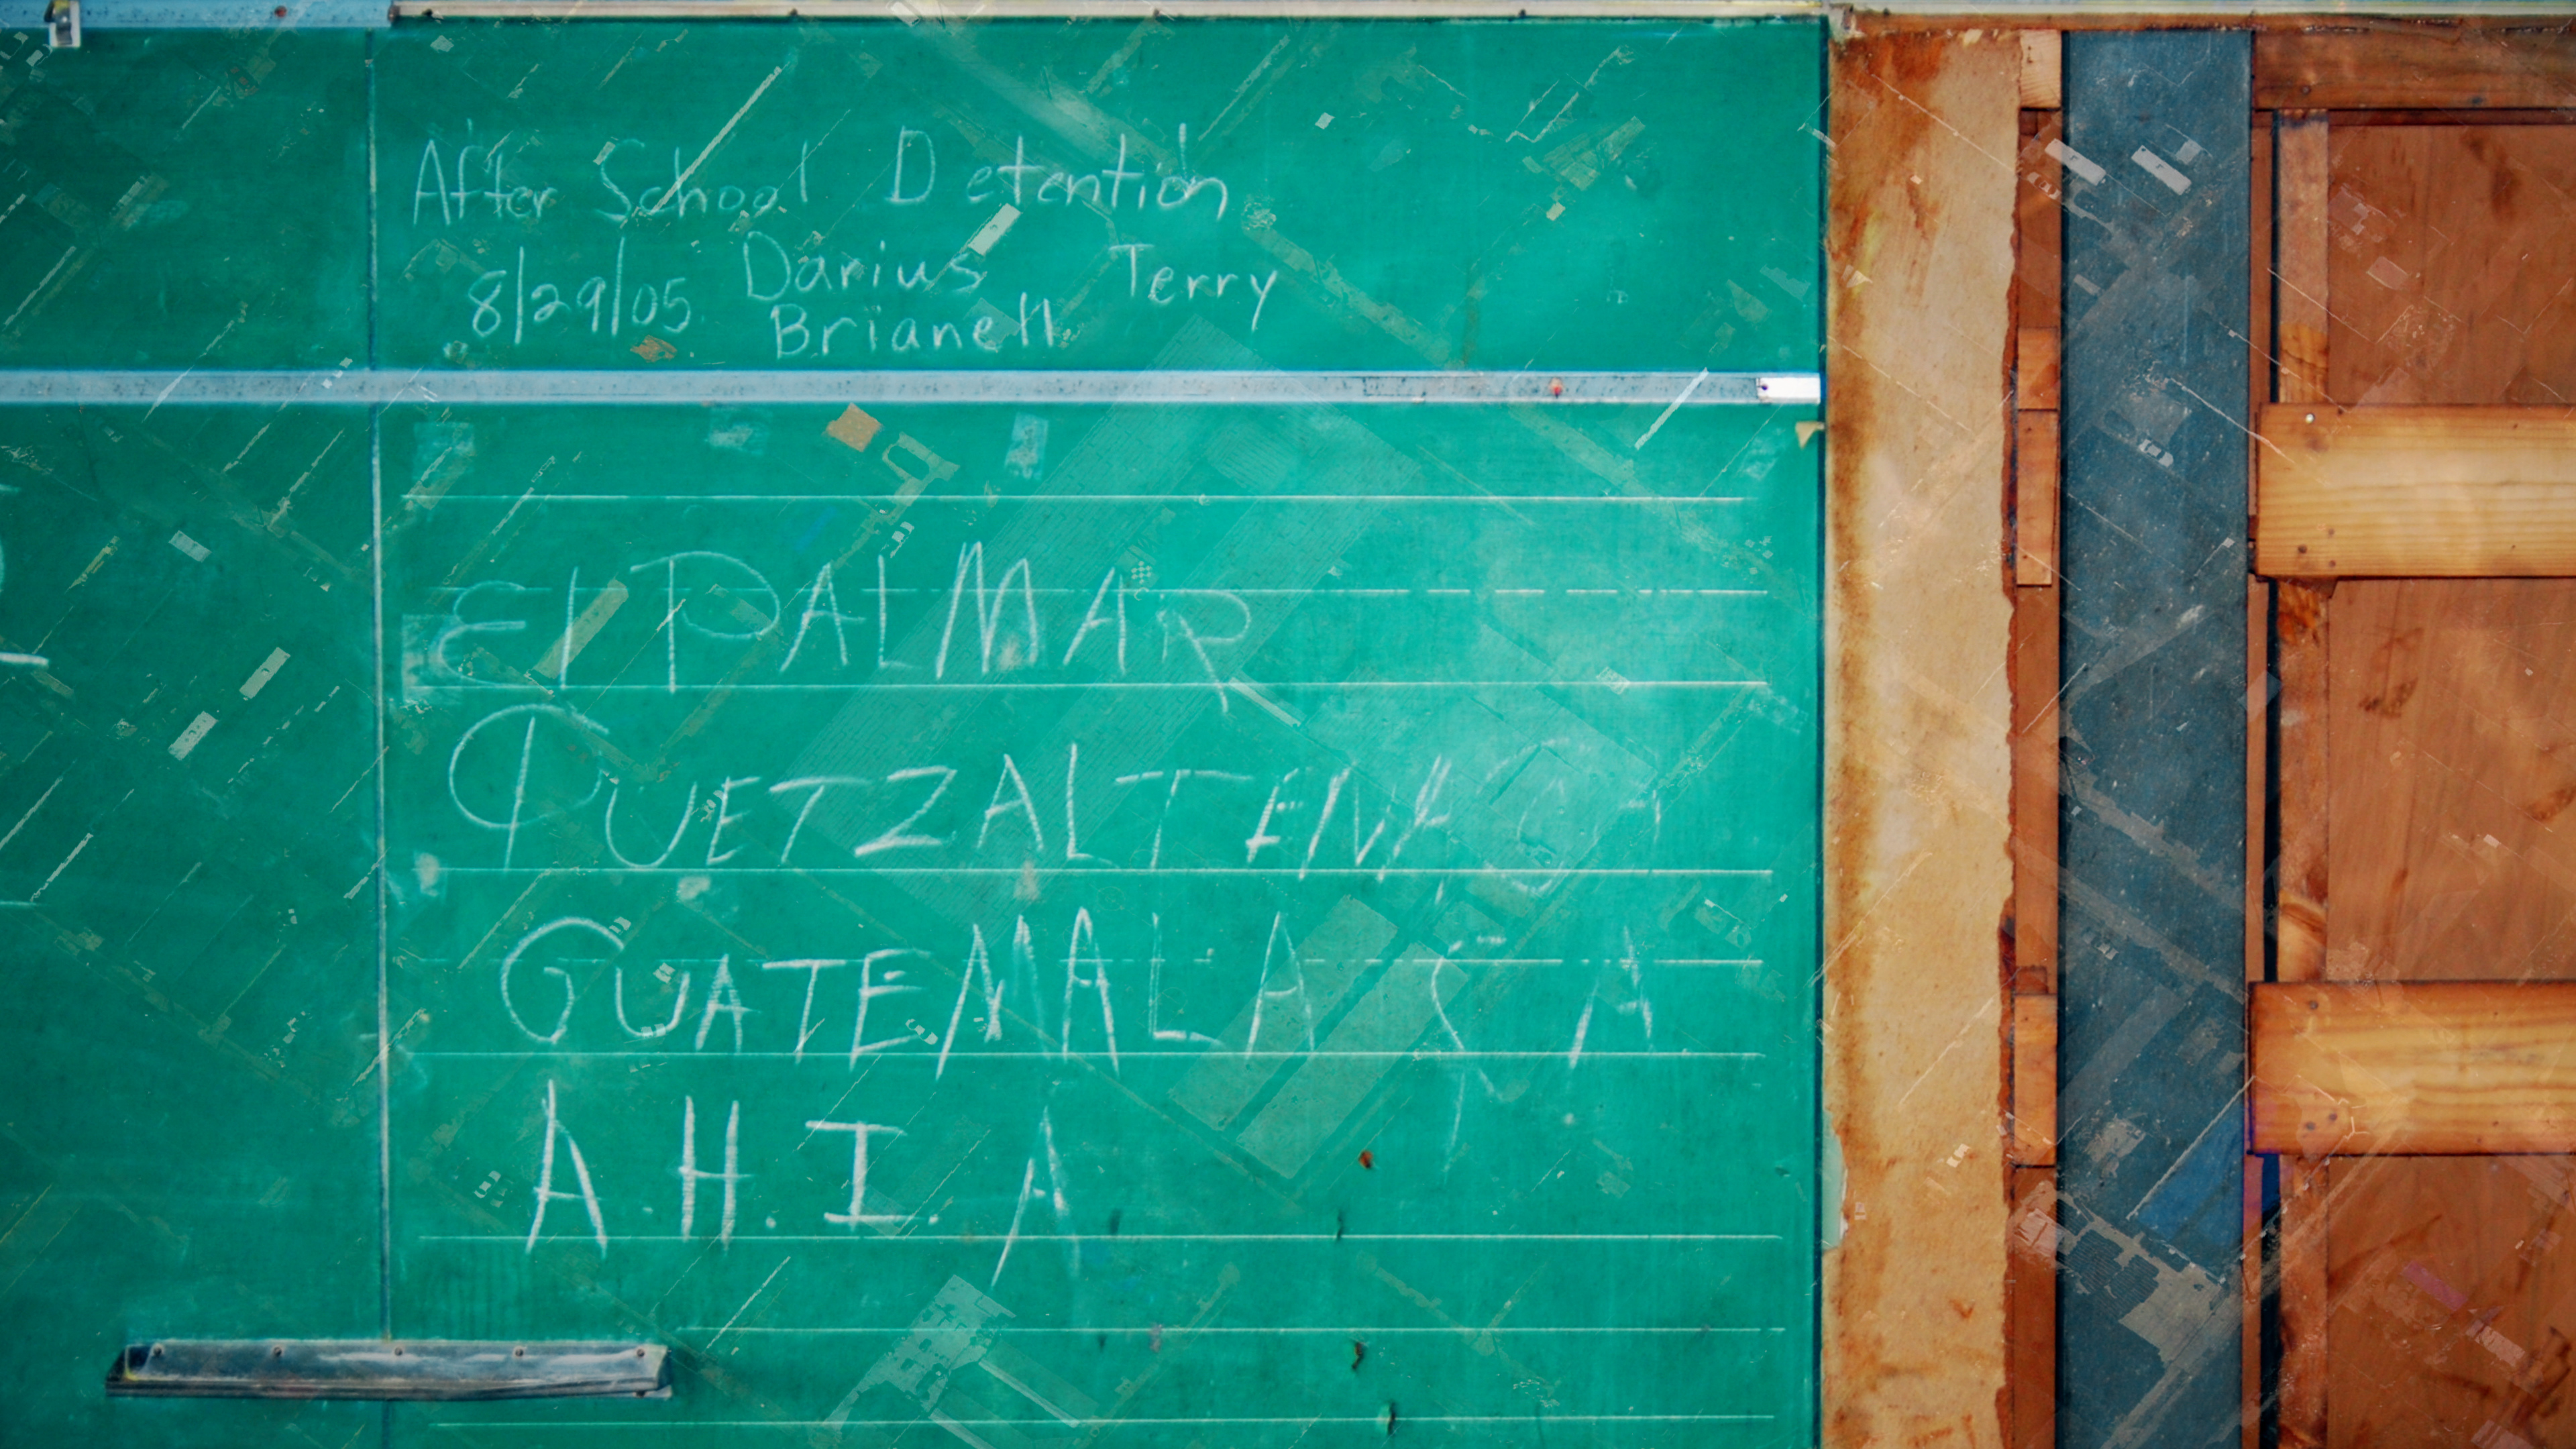 After School Detention
8/29/05 Darius Terry
Brianell
El PALMAR
QUETZALTEN
GUATEMALA C A
A.H.I. A